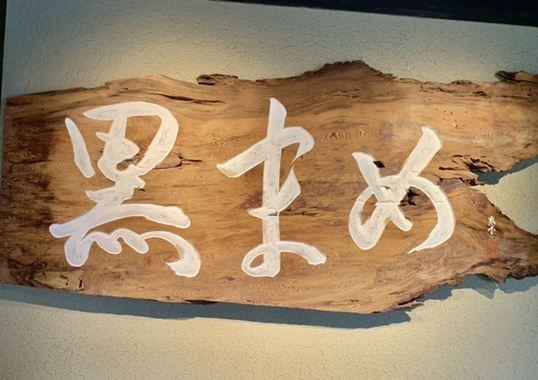 黒まめ